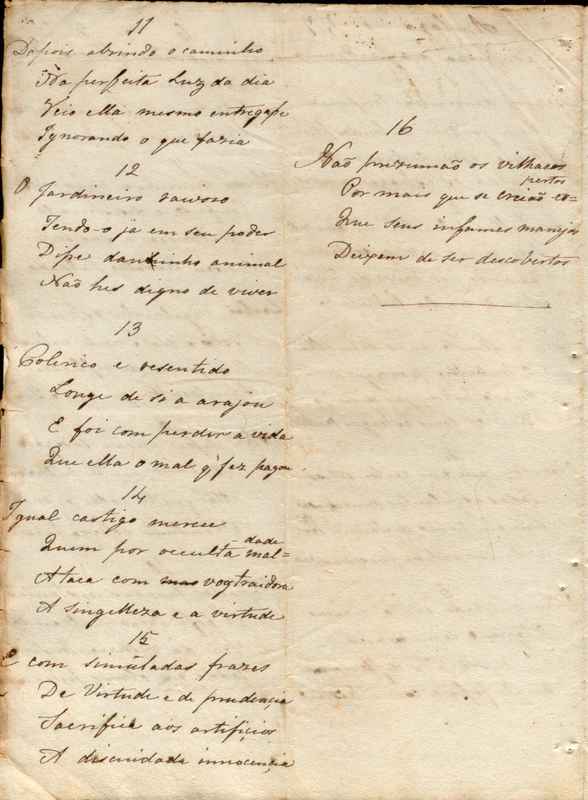 11
Depois abrindo o caminho
Na perfeita Luz do dia
Veio ella mesmo entregaſse
Ignorando o que fazia
12
O Jardineiro raivozo
Tendo-o ja em seu poder
Diſse daninho animal
Não hes digno de viver
13
Colerico e resentido
Longe de si a arajou
E foi com perder a vida
Que ella o mal q' fez pagou.
14
Igual castigo merece
Quem por occulta mal=dade
Ataca com voz traidora
A singelleza e a virtude
15
E com simuladas frazes
De Virtude e de prudencia
Sacrifica aos artificios
A discuidada innocencia
16
Não prezumão os velhacos
Por mais que se creião es=pertos
Que seus infames manejos
Deixem de ser descobertos